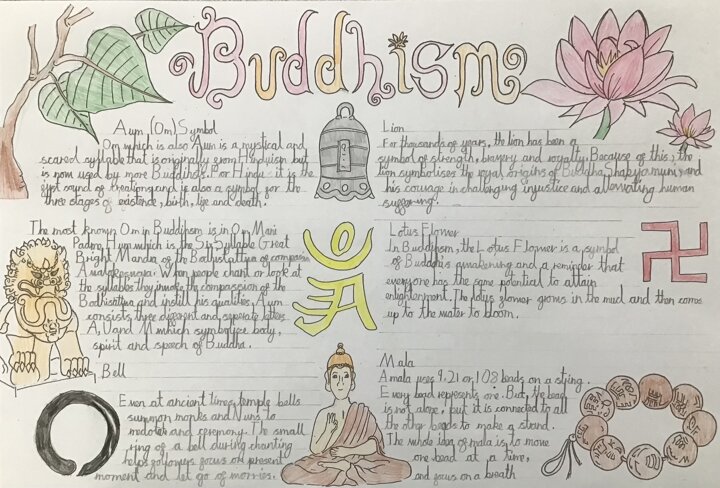 Buddhism
Aum (Om) Symbol
Om which is also Aum is a mystical and
scared syllable that is originally from Hinduism but
is now used by more Buddhists. For Hindus it is the
first sound of creation and is also a symbol for the
three stages of existence, birth, life and death.
The most known Om in Buddhism is in Om Mani
Padme Hum which is the Six Syllable Great
Bright Mantra of the Bodhisattva of compassion
When people chant or look at
the syllables they invoke the compassion of the
Bodhisattva and instill his qualities. Aum
consists three different and seperate letters
A, U and M which symbolize body,
spirit and speech of Buddha.
Bell
Even at ancient times temple bells
summon monks and Nuns to
and ceremony. The small
ring of a bell during chanting
helps followers focus on present
moment and let go of worries.
Lion
For thousands of years, the lion has been a
symbol of strength, bravery and royalty. Because of this, the
lion symbolises the royal origins of Buddha Shakyamuni and
his courage in challenging injustice and alleviating human
suffering.
Lotus Flower
In Buddhism, the Lotus Flower is a symbol
of Buddhas awakening and a reminder that
everyone has the same potential to attain
enlightenment. The lotus flower grows in the mud and then comes
up to the water to bloom.
Mala
A mala uses 9, 21 or 108 beads on a string.
Every bead represents one. But, the bead
is not alone, but it is connected to all
the other beads to make a strand.
The whole idea of mala is to move
one bead at a time,
and focus on a breath